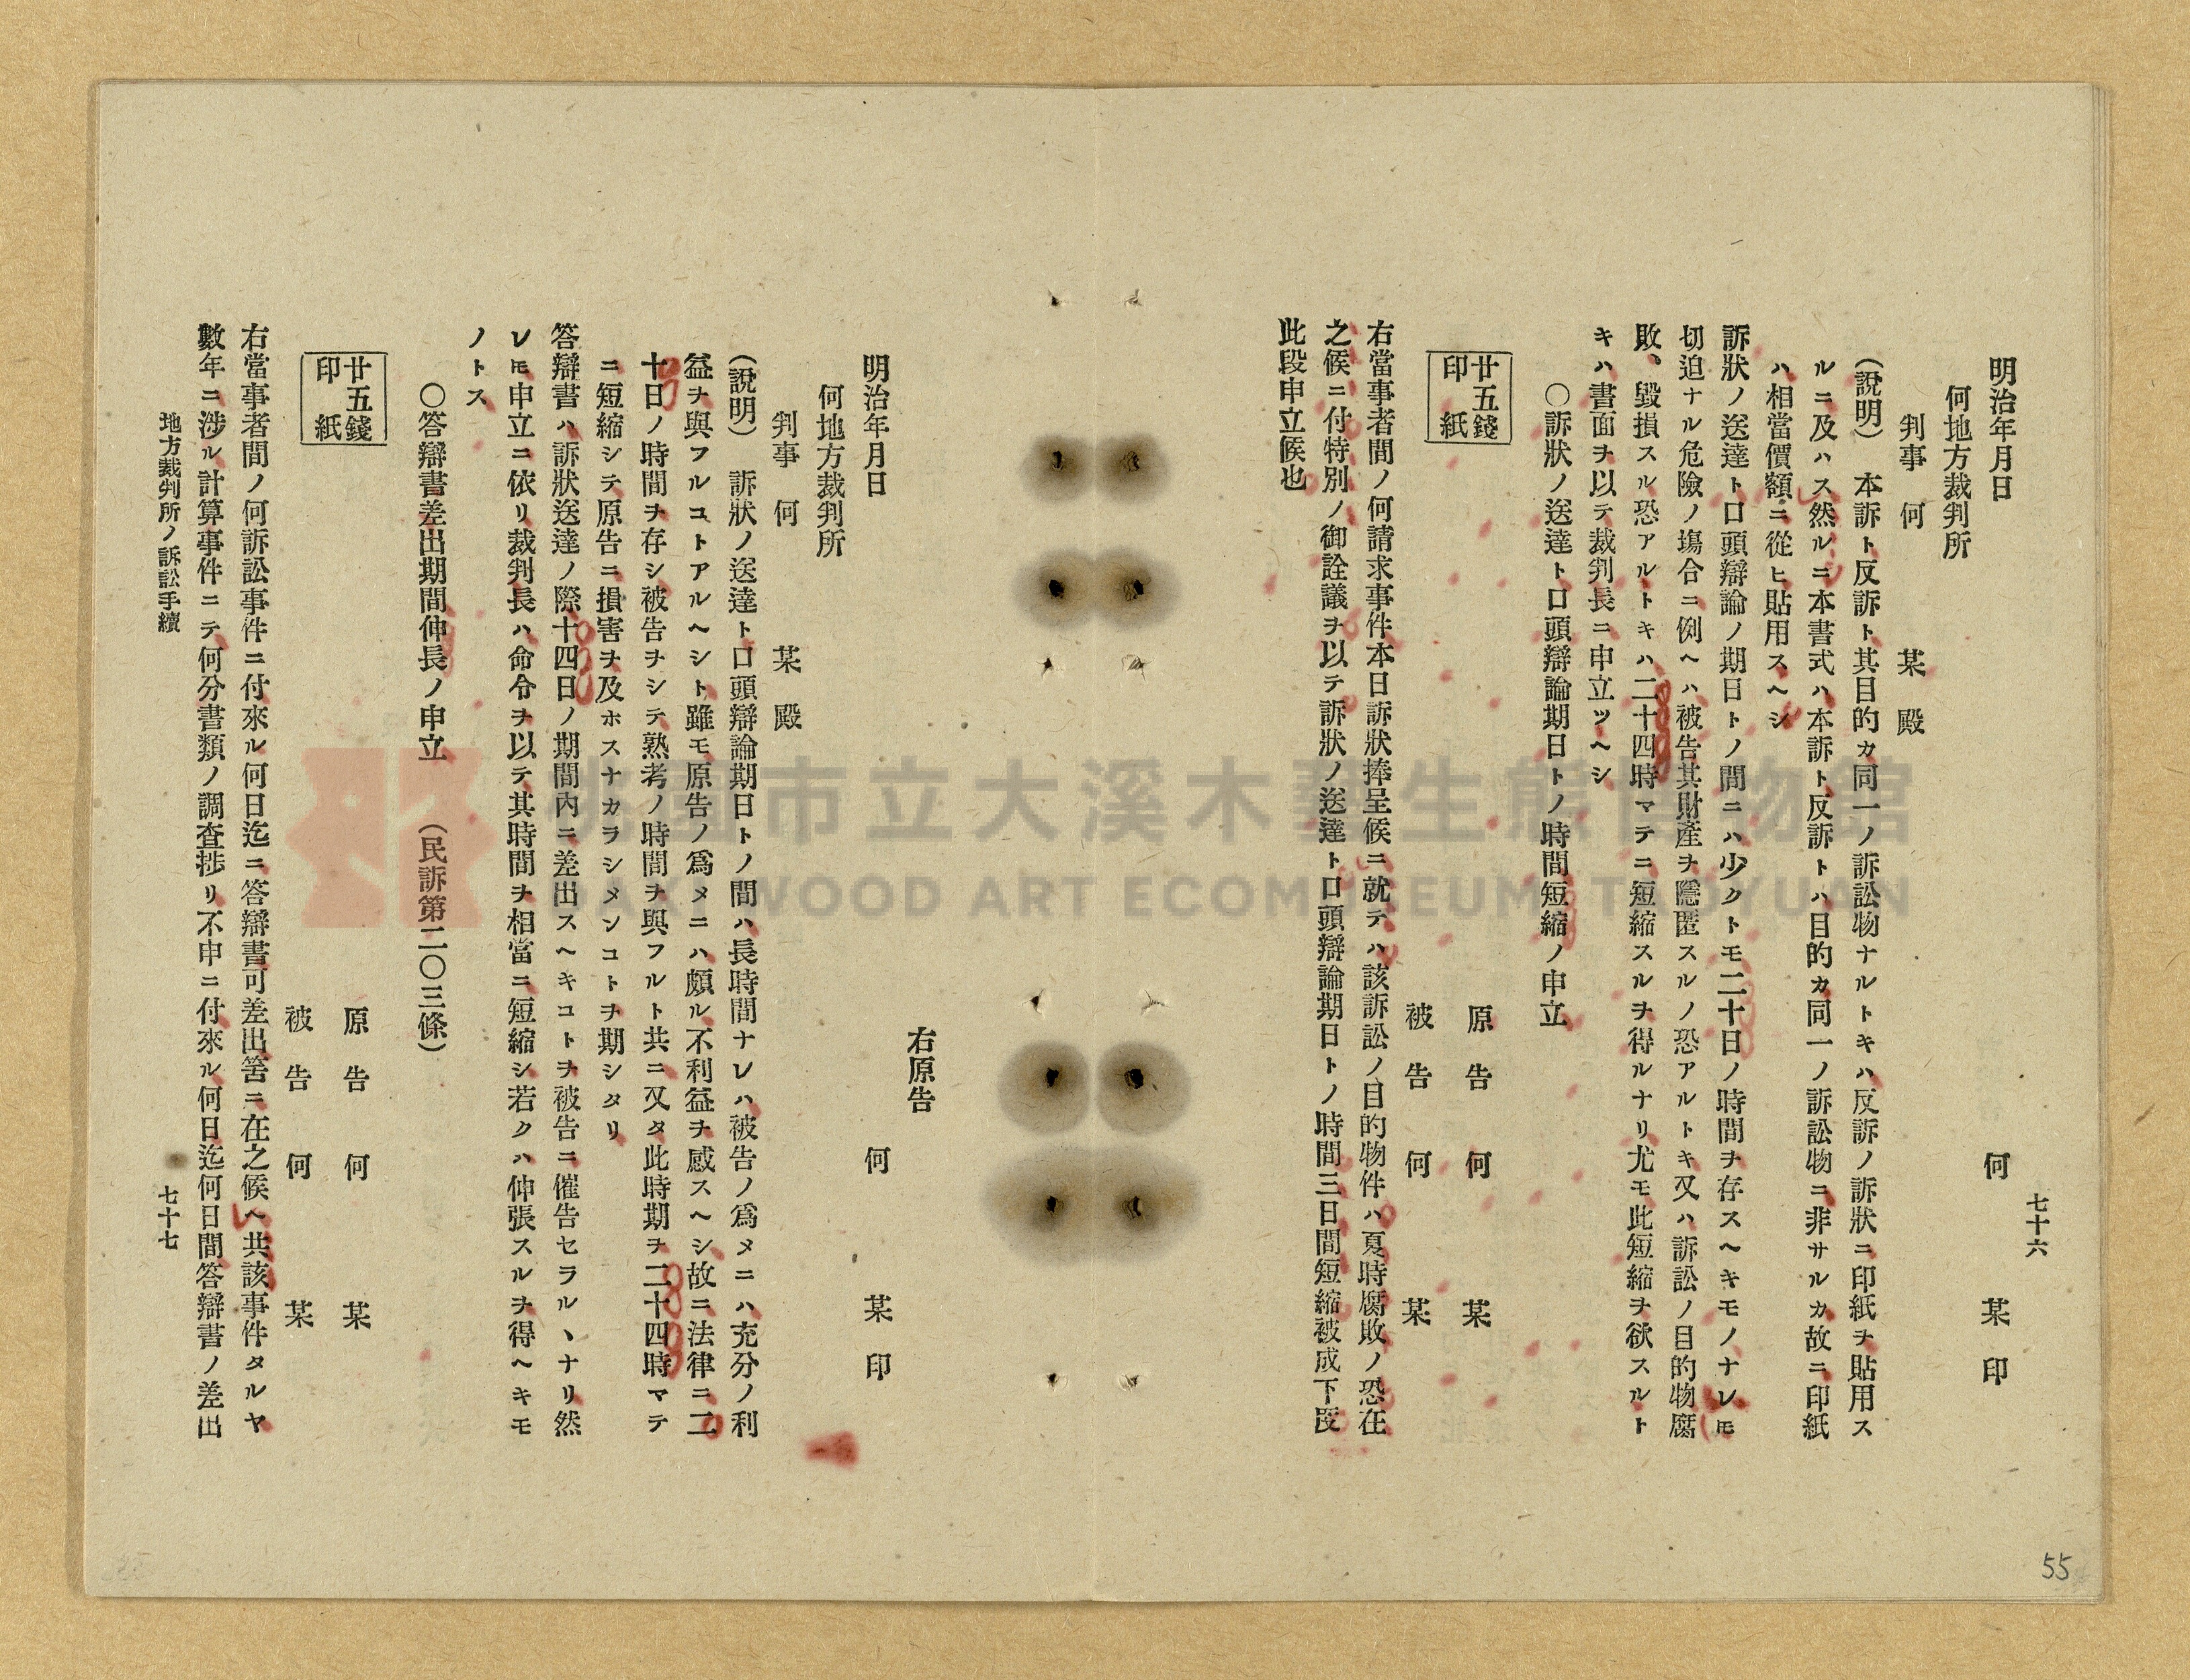 七十六
何　某　印
明治年月日
何地方裁判所
判事　何　某　殿
（說明）　本訴ト反訴ト其目的カ同一ノ訴訟物ナルトキハ反訴ノ訴狀ニ印紙ヲ貼用ス
ルニ及ハス然ルニ本書式ハ本訴ト反訴トハ目的カ同一ノ訴訟物ニ非サルカ故ニ印紙
ハ相當價額ニ從ヒ貼用スヘシ
訴狀ノ送達ト口頭辯論ノ期日トノ間ニハ少クトモ二十日ノ時間ヲ存スヘキモノナレモ
切迫ナル危險ノ塲合ニ例ヘハ被告其財產ヲ隱匿スルノ恐アルトキ又ハ訴訟ノ目的物腐
敗、毀損スル恐アルトキハ二十四時マテニ短縮スルヲ得ルナリ尤モ此短縮ヲ欲スルト
キハ書面ヲ以テ裁判長ニ申立ツヘシ
〇訴狀ノ送達ト口頭辯論期日トノ時間短縮ノ申立
廿五錢
印紙
原告　何　某
被告　何　某
右當事者間ノ何請求事件本日訴狀捧呈候ニ就テハ該訴訟ノ目的物件ハ夏時腐敗ノ恐在
之候ニ付特別ノ御詮議ヲ以テ訴狀ノ送達ト口頭辯論期日トノ時間三日間短縮被成下度
此段申立候也
右原告
何　某　印
明治年月日
何地方裁判所
判事　何　某　殿
（說明）　訴狀ノ送達ト口頭辯論期日トノ間ハ長時間ナレハ被告ノ爲メニハ充分ノ利
益ヲ與フルコトアルヘシト雖モ原告ノ爲メニハ頗ル不利益ヲ感スヘシ故ニ法律ニ二
十日ノ時間ヲ存シ被告ヲシテ熟考ノ時間ヲ與フルト共ニ又タ此時期ヲ二十四時マテ
ニ短縮シテ原告ニ損害ヲ及ホスナカラシメンコトヲ期シタリ
答辯書ハ訴狀送達ノ際十四日ノ期間內ニ差出スヘキコトヲ被告ニ催告セラルヽナリ然
レモ申立ニ依リ裁判長ハ命令ヲ以テ其時間ヲ相當ニ短縮シ若クハ伸張スルヲ得ヘキモ
ノトス
〇答辯書差出期間伸長ノ申立　（民訴第二〇三條）
廿五錢
印紙
原告　何　某
被告　何　某
右當事者間ノ何訴訟事件ニ付來ル何日迄ニ答辯書可差出筈ニ在之候ヘ共該事件タルヤ
數年ニ涉ル計算事件ニテ何分書類ノ調查捗リ不申ニ付來ル何日迄何日間答辯書ノ差出
地方裁判所ノ訴訟手續
七十七
55
桃園市立大溪木藝生態博物館
DAXI WOOD ART ECOMUSEUM, TAOYUAN